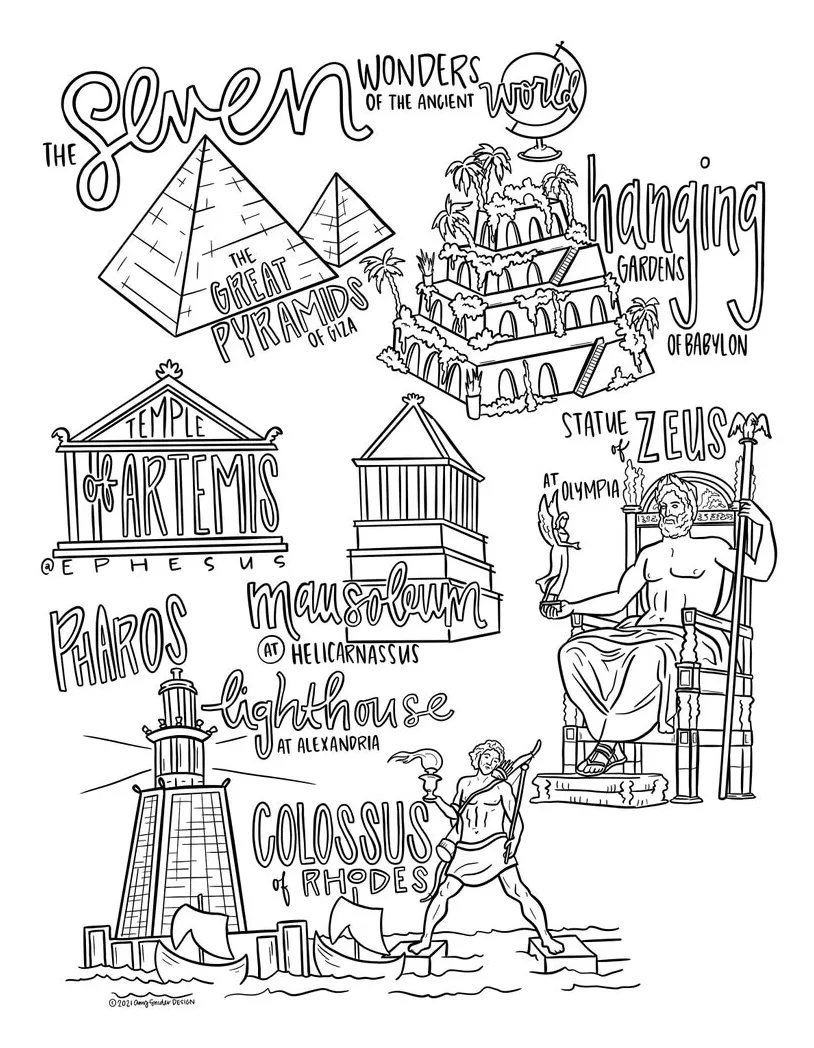 THE Seven WONDERS
OF THE ANCIENT World
THE
GREAT
PYRAMIDS
OF GIZA
hanging
GARDENS
OF BABYLON
TEMPLE
of ARTEMIS
@EPHESUS
mausoleum
AT HELICARNASSUS
STATUE
of ZEUS
AT OLYMPIA
PHAROS
lighthouse
AT ALEXANDRIA
COLOSSUS
of RHODES
©2021 Amy Snider DESIGN